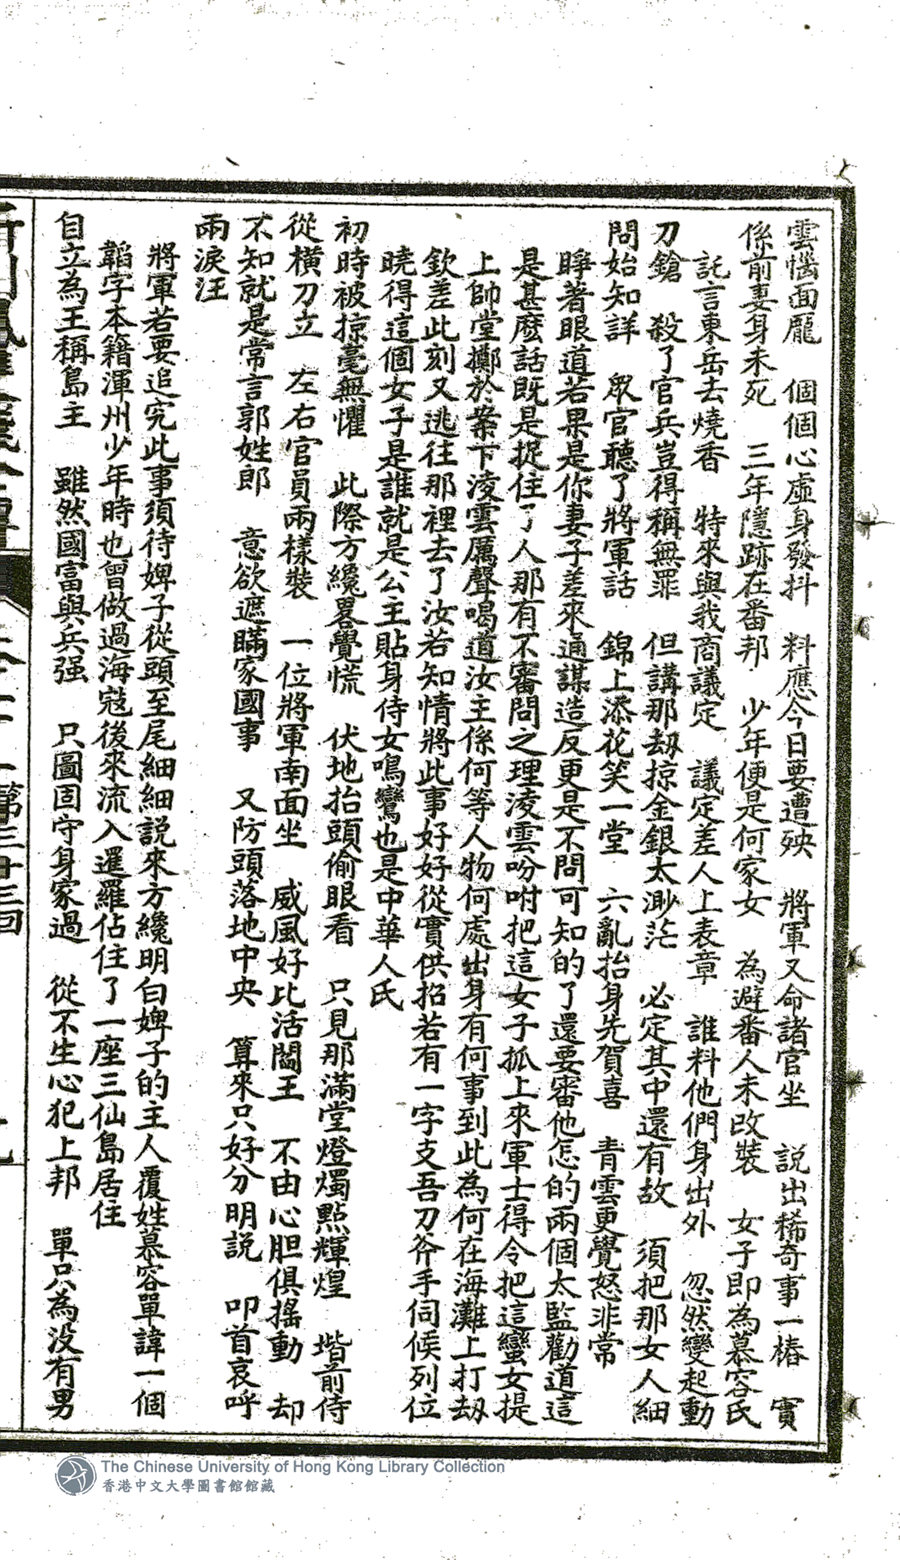 雲惱面龎　個個心虛身發抖　料應今日要遭殃　將軍又命諸官坐　説出稀奇事一樁　實
係前妻身未死　三年隱跡在番邦　少年便是何家女　為避番人未改裝　女子即為慕容氏
託言東岳去燒香　特來與我商議定　議定差人上表章　誰料他們身出外　忽然變起動
刀鎗　殺了官兵豈得稱無罪　但講那刼掠金銀太渺茫　必定其中還有故　須把那女人細
問始知詳　眾官聽了將軍話　錦上添花笑一堂　六亂抬身先賀喜　青雲更覺怒非常
睜著眼道若果是你妻子差來通謀造反更是不問可知的了還要審他怎的兩個太監勸道這
是甚麽話既是捉住了人那有不審問之理淩雲吩咐把這女子孤上來軍士得令把這蠻女提
上帥堂擲於案下淩雲厲聲喝道汝主係何等人物何處出身有何事到此為何在海灘上打刼
欽差此刻又逃往那裡去了汝若知情將此事好好從實供招若有一字支吾刀斧手伺候列位
曉得這個女子是誰就是公主貼身侍女鳴鸞也是中華人氏
初時被掠毫無懼　此際方纔畧覺慌　伏地抬頭偷眼看　只見那滿堂燈燭點輝煌　堦前侍
從橫刀立　左右官員兩樣裝　一位將軍南面坐　威風好比活閻王　不由心胆俱搖動　却
不知就是常言郭姓郎　意欲遮瞞家國事　又防頭落地中央　算來只好分明説　叩首哀呼
兩淚汪
將軍若要追究此事須待婢子從頭至尾細細説來方纔明白婢子的主人覆姓慕容單諱一個
韜字本籍渾州少年時也曾做過海寇後來流入暹羅佔住了一座三仙島居住
自立為王稱島主　雖然國富與兵强　只圖固守身家過　從不生心犯上邦　單只為没有男
第三十三回
The Chinese University of Hong Kong Library Collection
香港中文大學圖書館館藏